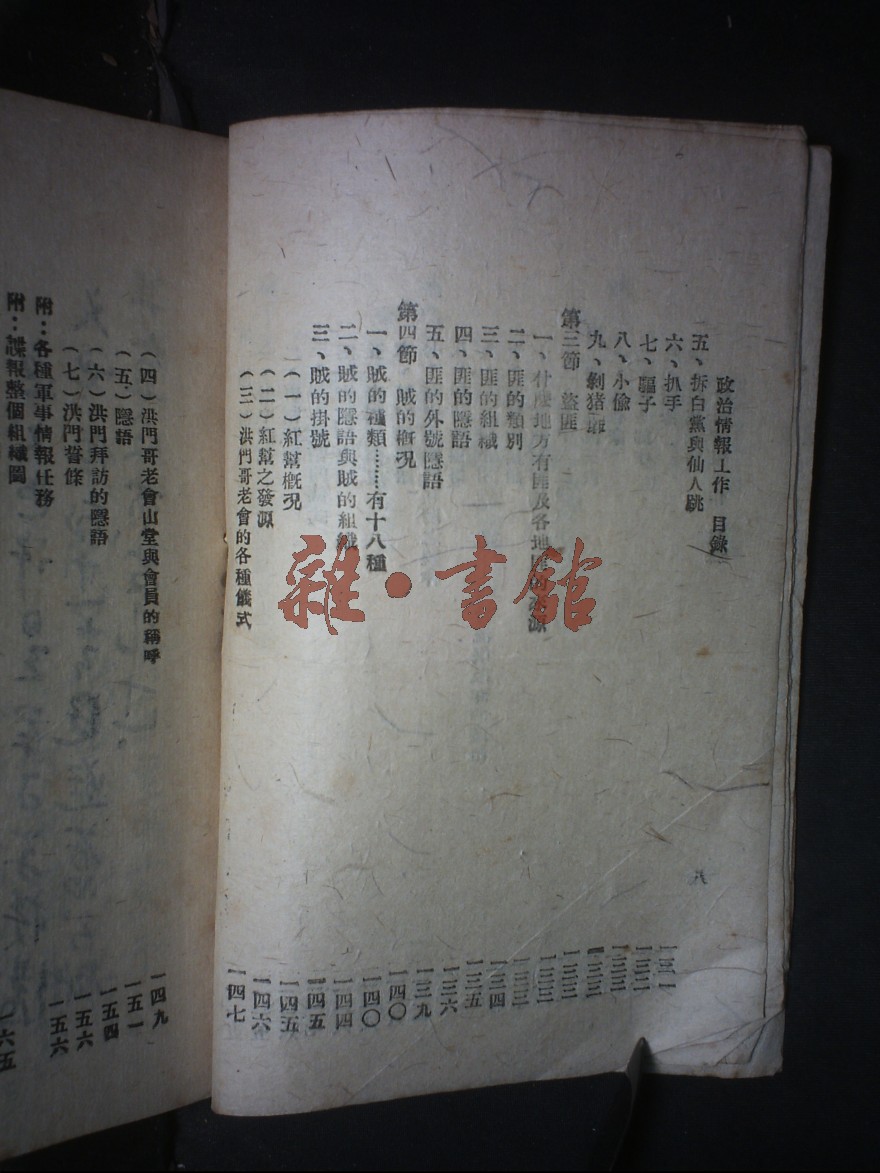 政治情報工作 目錄
八
五、拆白黨與仙人跳 一三一
六、扒手 一三二
七、騙子 一三二
八、小偷 一三三
九、剝猪玀
第三節 盜匪 一三三
一、什麽地方有匪及各地匪的 源
二、匪的類別 一三三
三、匪的組織 一三四
四、匪的隱語 一三五
五、匪的外號隱語 一三六
第四節 賊的概况 一三九
一、賊的種類……有十八種 一四〇
二、賊的隱語與賊的組織 一四〇
三、賊的掛號 一四四
(一)紅幫概况 一四五
(二)紅幫之發源 一四六
(三)洪門哥老會的各種儀式 一四七
(四)洪門哥老會山堂與會員的稱呼 一四九
(五)隱語 一五一
(六)洪門拜訪的隱語 一五四
(七)洪門誓條 一五六
附:各種軍事情報任務 一五六
附:諜報整個組織圖 一六五
雜·書館